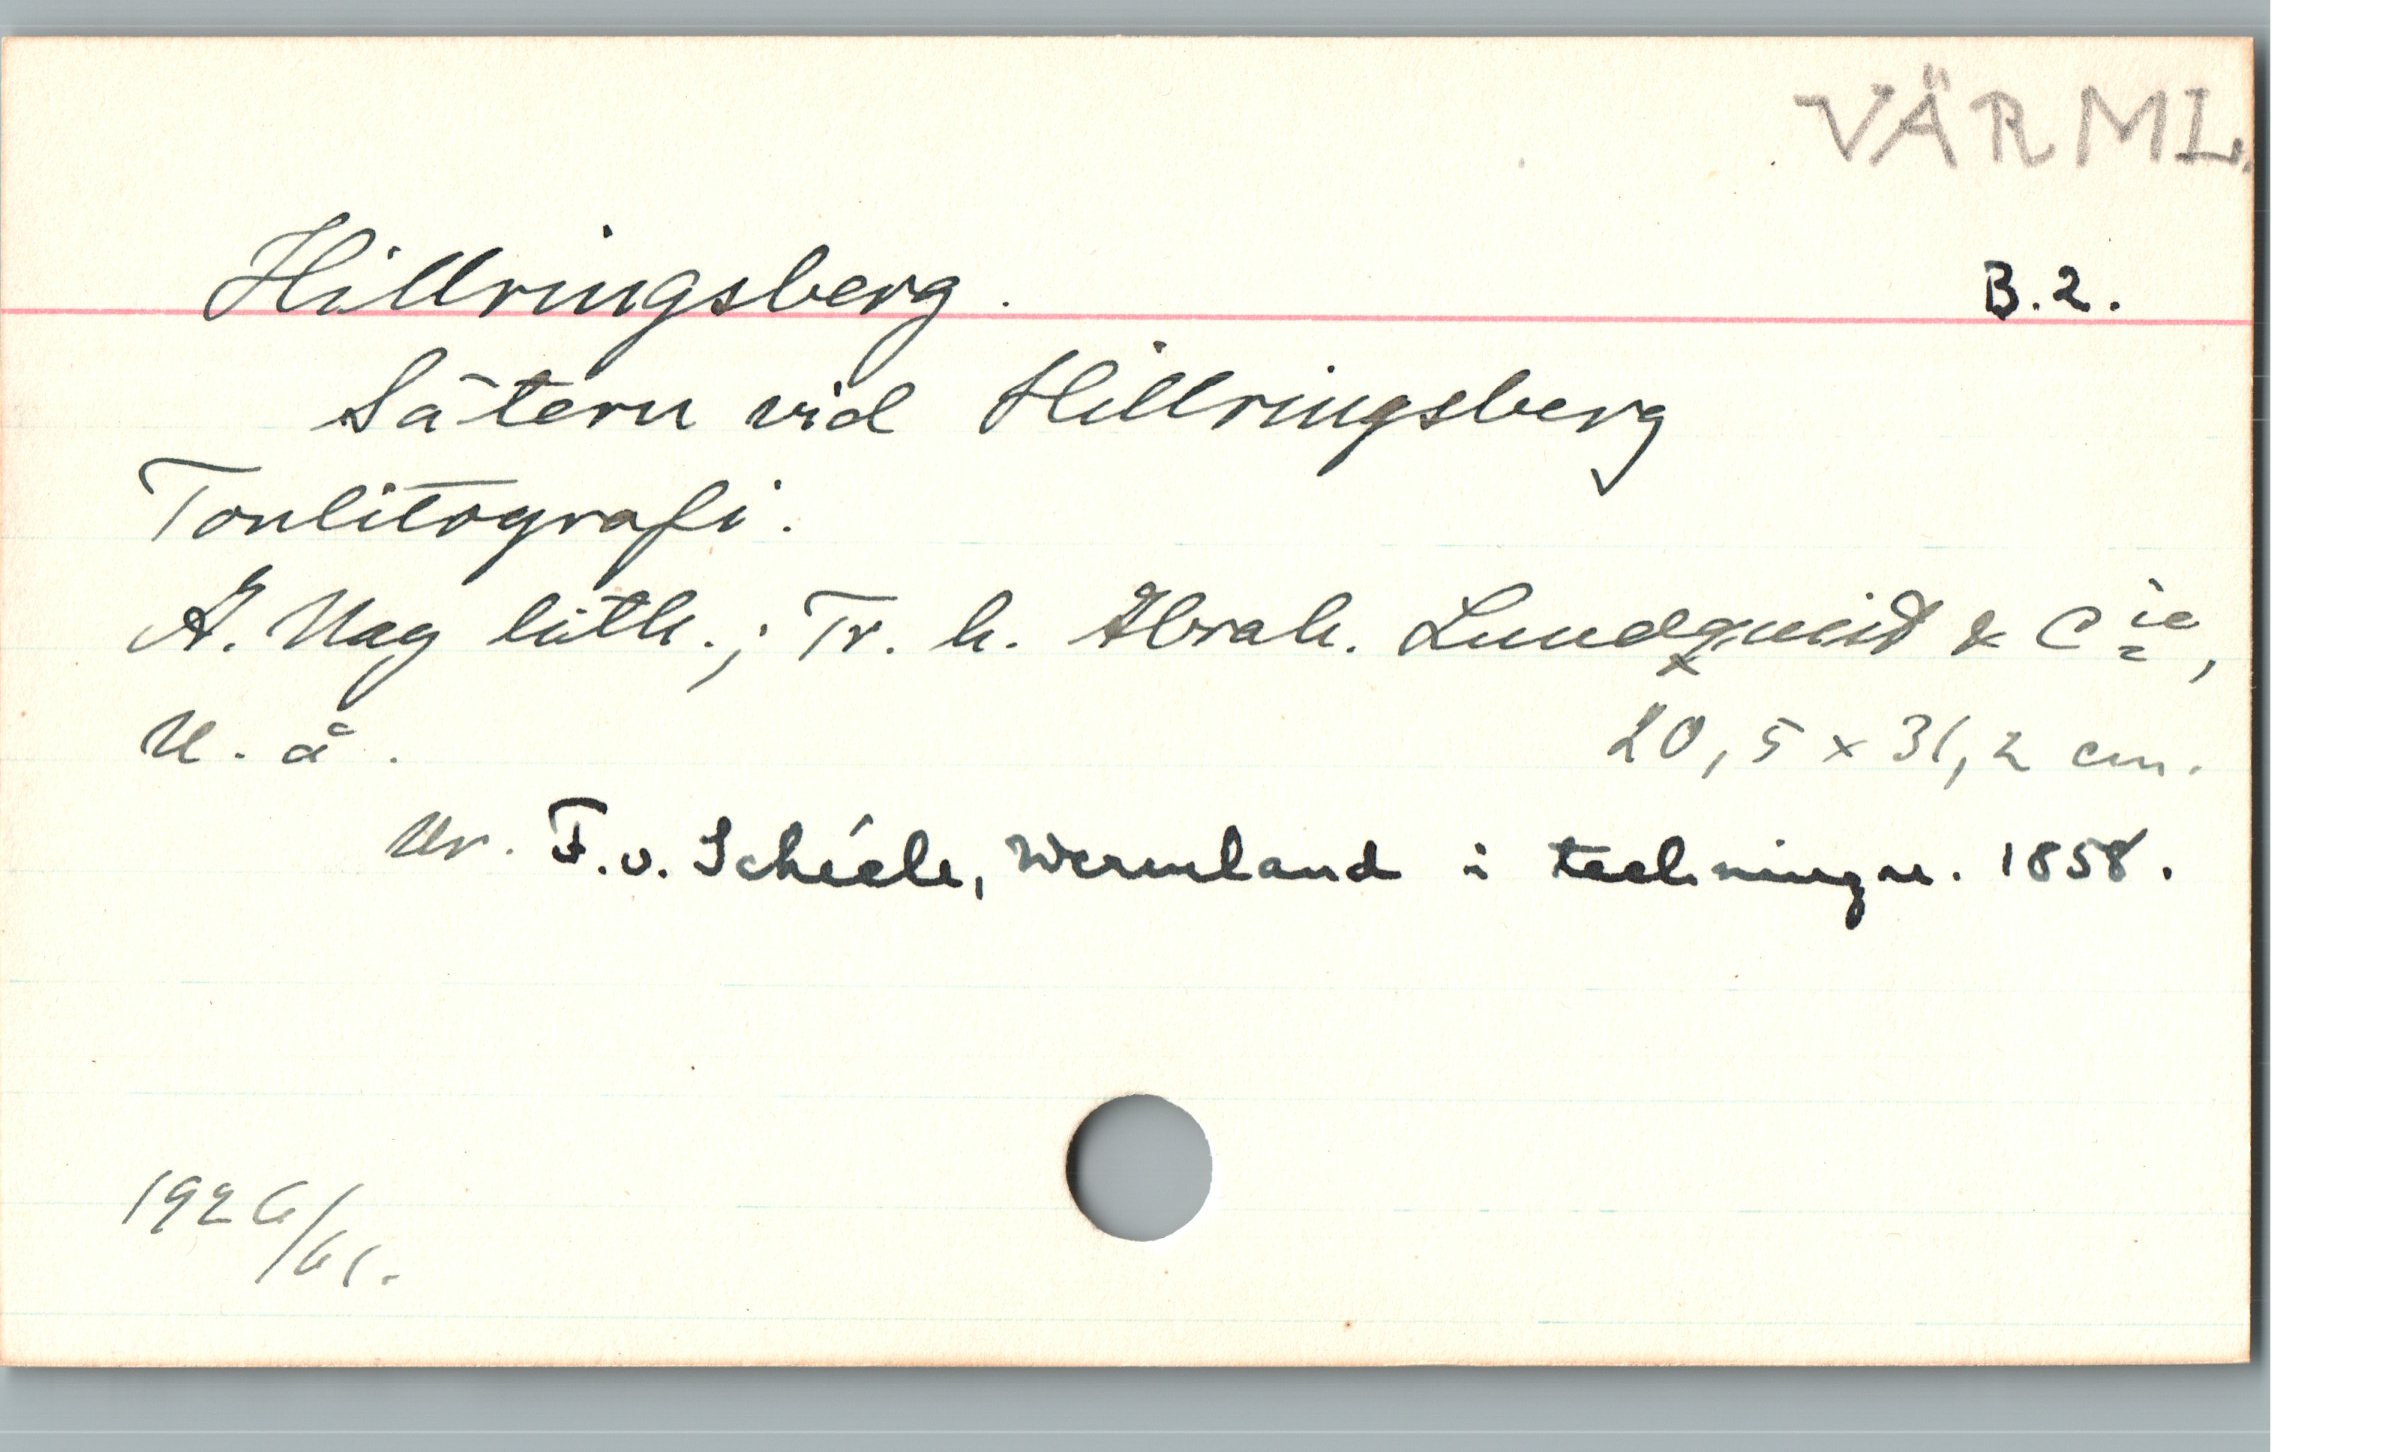 VÄRML.
Hillringsberg.
B.2.
Sätern vid Hillringsberg
Tonlitografi.
A. Nay lith.; Tr. h. Abrah. Lundquist & Cie,
U. å.
20,5 x 31,2 cm.
Ur. F. v. Schéele, Wermland i teckningar. 1858.
1926/61.